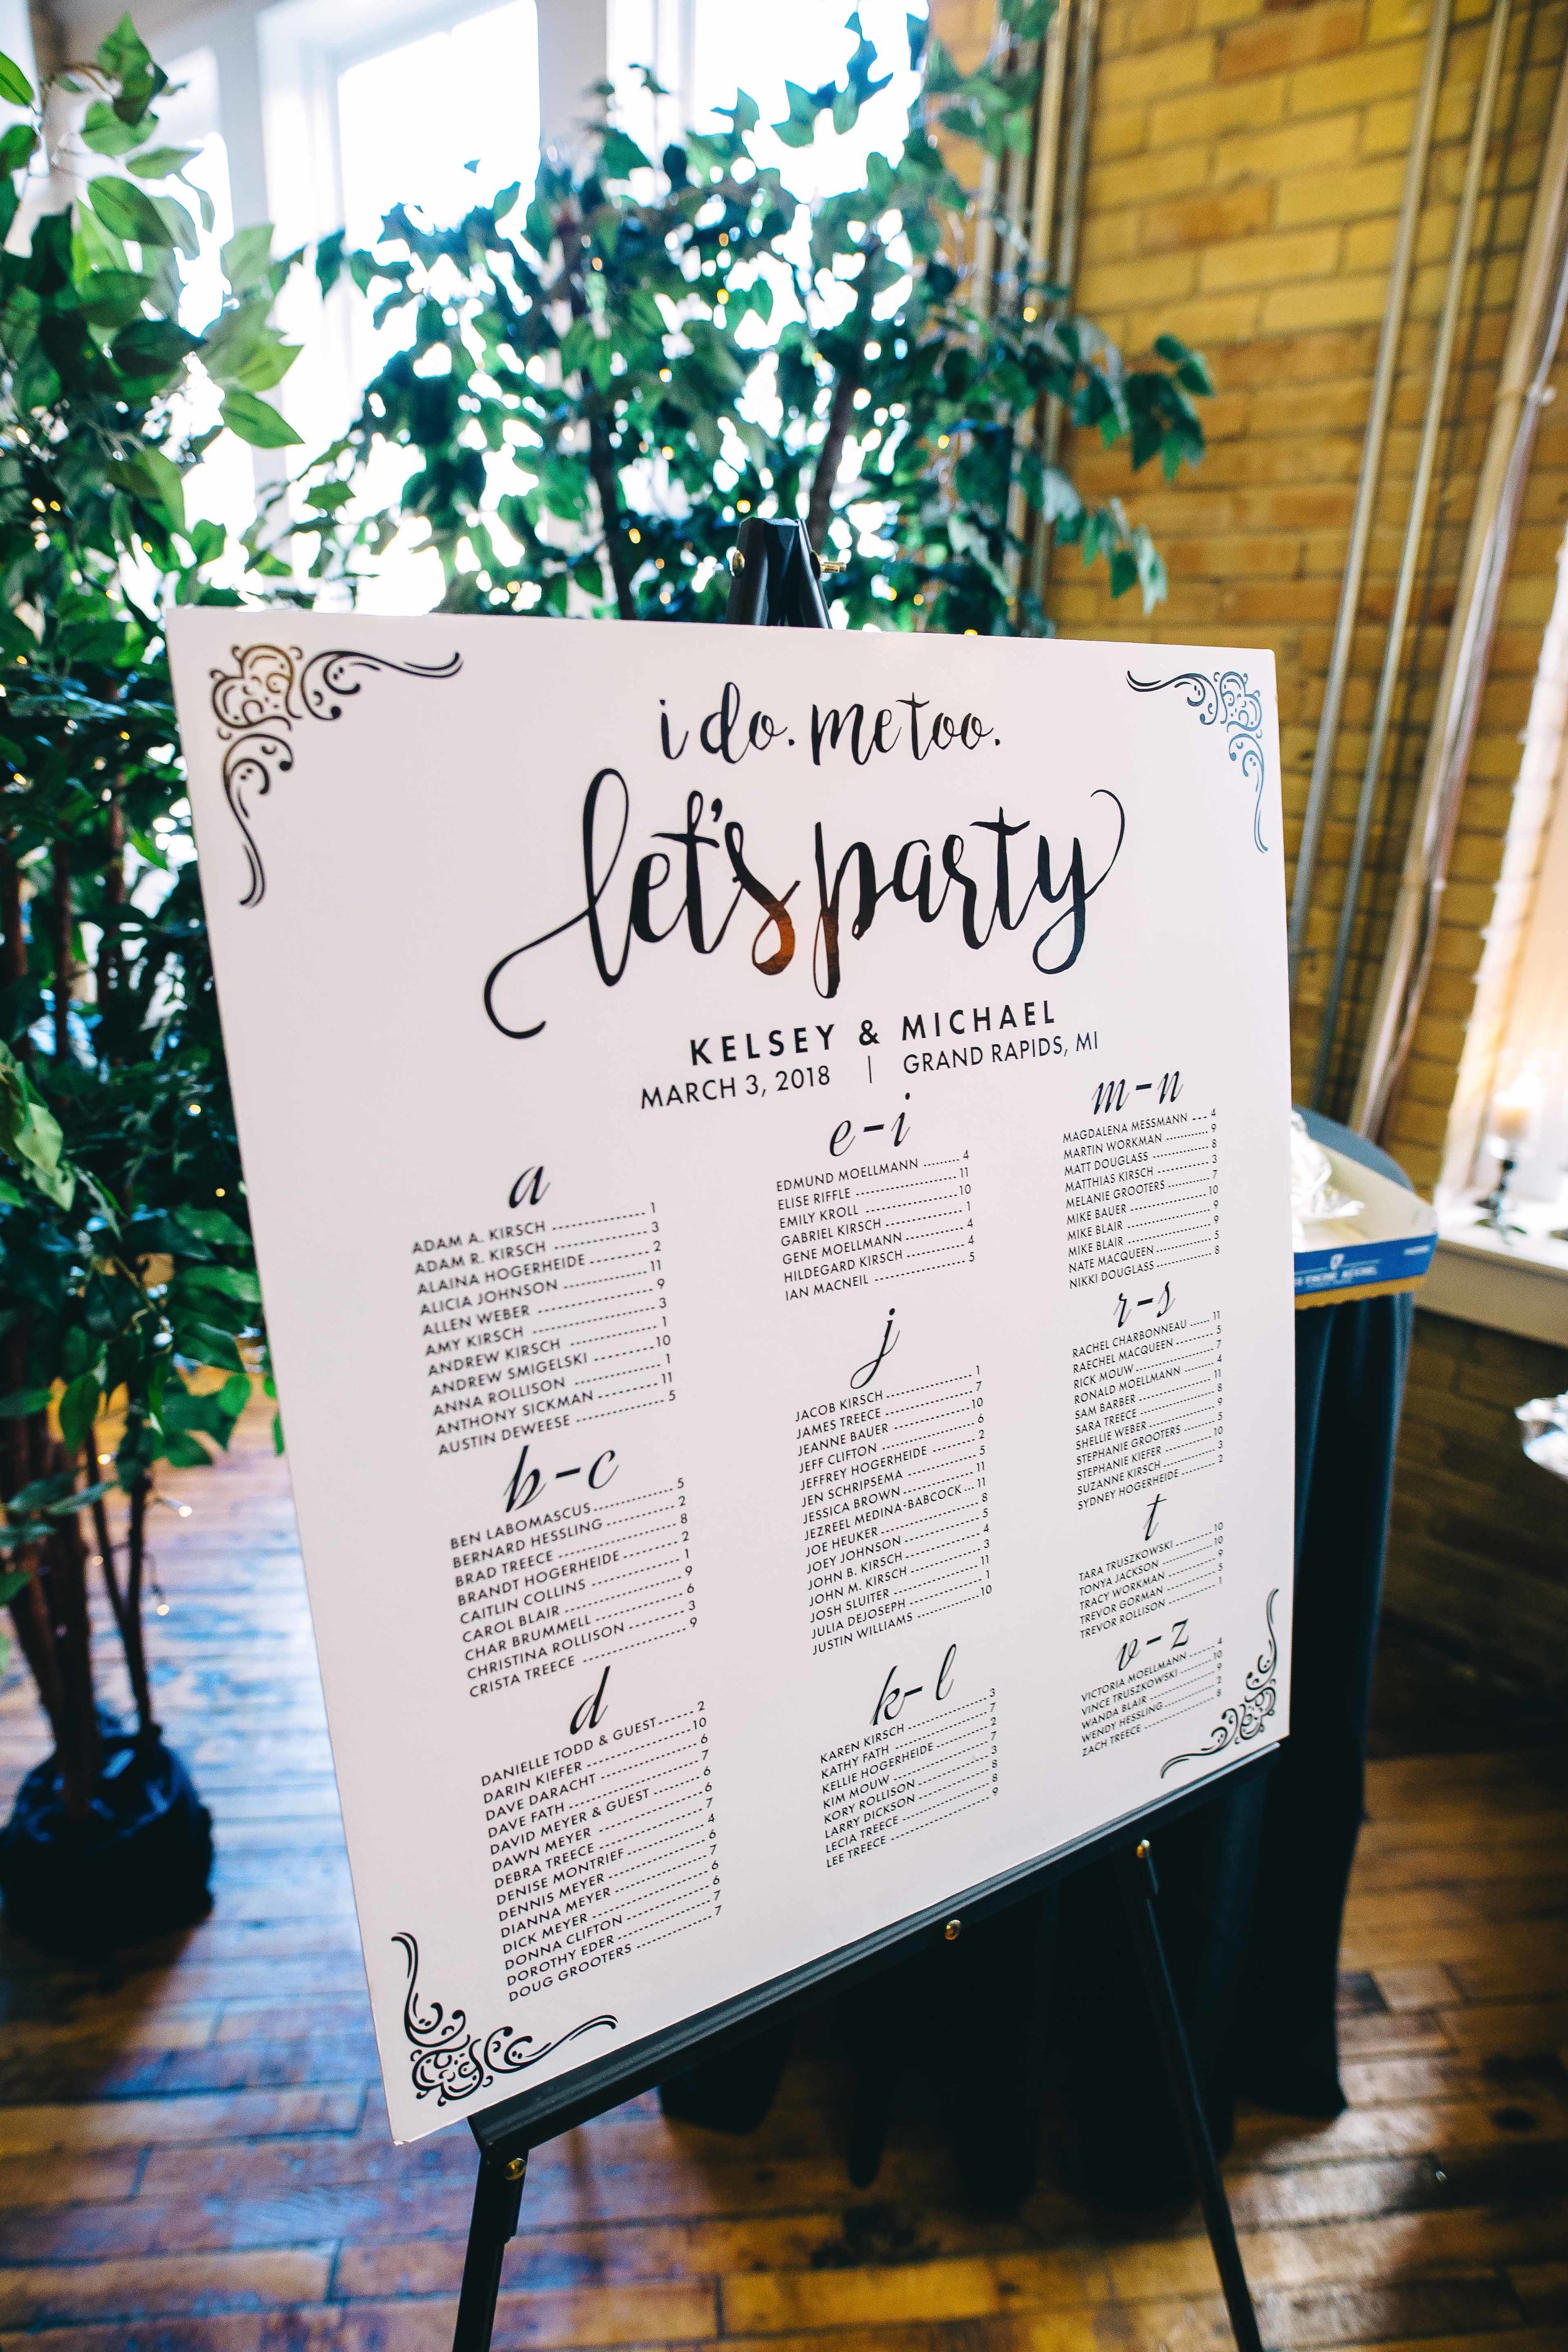 i do. me too.
let's party
KELSEY & MICHAEL
MARCH 3, 2018 | GRAND RAPIDS, MI
a
ADAM A. KIRSCH ---------- 1
ADAM R. KIRSCH ---------- 3
ALAINA HOGERHEIDE ---------- 2
ALICIA JOHNSON ---------- 11
ALLEN WEBER ---------- 9
AMY KIRSCH ---------- 3
ANDREW KIRSCH ---------- 1
ANDREW SMIGELSKI ---------- 10
ANNA ROLLISON ---------- 1
ANTHONY SICKMAN ---------- 11
AUSTIN DEWEESE ---------- 5
b-c
BEN LABOMASCUS ---------- 5
BERNARD HESSLING ---------- 2
BRAD TREECE ---------- 8
BRANDT HOGERHEIDE ---------- 2
CAITLIN COLLINS ---------- 1
CAROL BLAIR ---------- 9
CHAR BRUMMELL ---------- 6
CHRISTINA ROLLISON ---------- 3
CRISTA TREECE ---------- 9
d
DANIELLE TODD & GUEST ------ 2
DARIN KIEFER ---------- 10
DAVE DARACHT ---------- 6
DAVE FATH ---------- 7
DAVID MEYER & GUEST ---------- 6
DAWN MEYER ---------- 6
DEBRA TREECE ---------- 7
DENISE MONTRIEF ---------- 4
DENNIS MEYER ---------- 6
DIANNA MEYER ---------- 7
DICK MEYER ---------- 6
DONNA CLIFTON ---------- 6
DOROTHY EDER ---------- 7
DOUG GROOTERS ---------- 7
e-i
EDMUND MOELLMANN -------- 4
ELISE RIFFLE ---------- 11
EMILY KROLL ---------- 10
GABRIEL KIRSCH ---------- 1
GENE MOELLMANN ---------- 4
HILDEGARD KIRSCH ---------- 4
IAN MACNEIL ---------- 5
j
JACOB KIRSCH ---------- 1
JAMES TREECE ---------- 7
JEANNE BAUER ---------- 10
JEFF CLIFTON ---------- 6
JEFFREY HOGERHEIDE ---------- 2
JEN SCHRIPSEMA ---------- 5
JESSICA BROWN ---------- 11
JEZREEL MEDINA-BABCOCK --- 11
JOE HEUKER ---------- 8
JOEY JOHNSON ---------- 5
JOHN B. KIRSCH ---------- 4
JOHN M. KIRSCH ---------- 3
JOSH SLUITER ---------- 11
JULIA DEJOSEPH ---------- 1
JUSTIN WILLIAMS ---------- 10
k-l
KAREN KIRSCH ---------- 3
KATHY FATH ---------- 7
KELLIE HOGERHEIDE ---------- 2
KIM MOUW ---------- 7
KORY ROLLISON ---------- 3
LARRY DICKSON ---------- 8
LECIA TREECE ---------- 8
LEE TREECE ---------- 9
m-n
MAGDALENA MESSMANN --- 4
MARTIN WORKMAN ---------- 9
MATT DOUGLASS ---------- 8
MATTHIAS KIRSCH ---------- 3
MELANIE GROOTERS ---------- 7
MIKE BAUER ---------- 10
MIKE BLAIR ---------- 9
MIKE BLAIR ---------- 9
NATE MACQUEEN ---------- 5
NIKKI DOUGLASS ---------- 8
r-s
RACHEL CHARBONNEAU ----- 11
RAECHEL MACQUEEN ---------- 5
RICK MOUW ---------- 7
RONALD MOELLMANN ---------- 4
SAM BARBER ---------- 11
SARA TREECE ---------- 8
SHELLIE WEBER ---------- 9
STEPHANIE GROOTERS ---------- 5
STEPHANIE KIEFER ---------- 10
SUZANNE KIRSCH ---------- 3
SYDNEY HOGERHEIDE ---------- 2
t
TARA TRUSZKOWSKI ---------- 10
TONYA JACKSON ---------- 10
TRACY WORKMAN ---------- 9
TREVOR GORMAN ---------- 5
TREVOR ROLLISON ---------- 1
v-z
VICTORIA MOELLMANN ---------- 4
VINCE TRUSZKOWSKI ---------- 10
WANDA BLAIR ---------- 9
WENDY HESSLING ---------- 2
ZACH TREECE ---------- 8